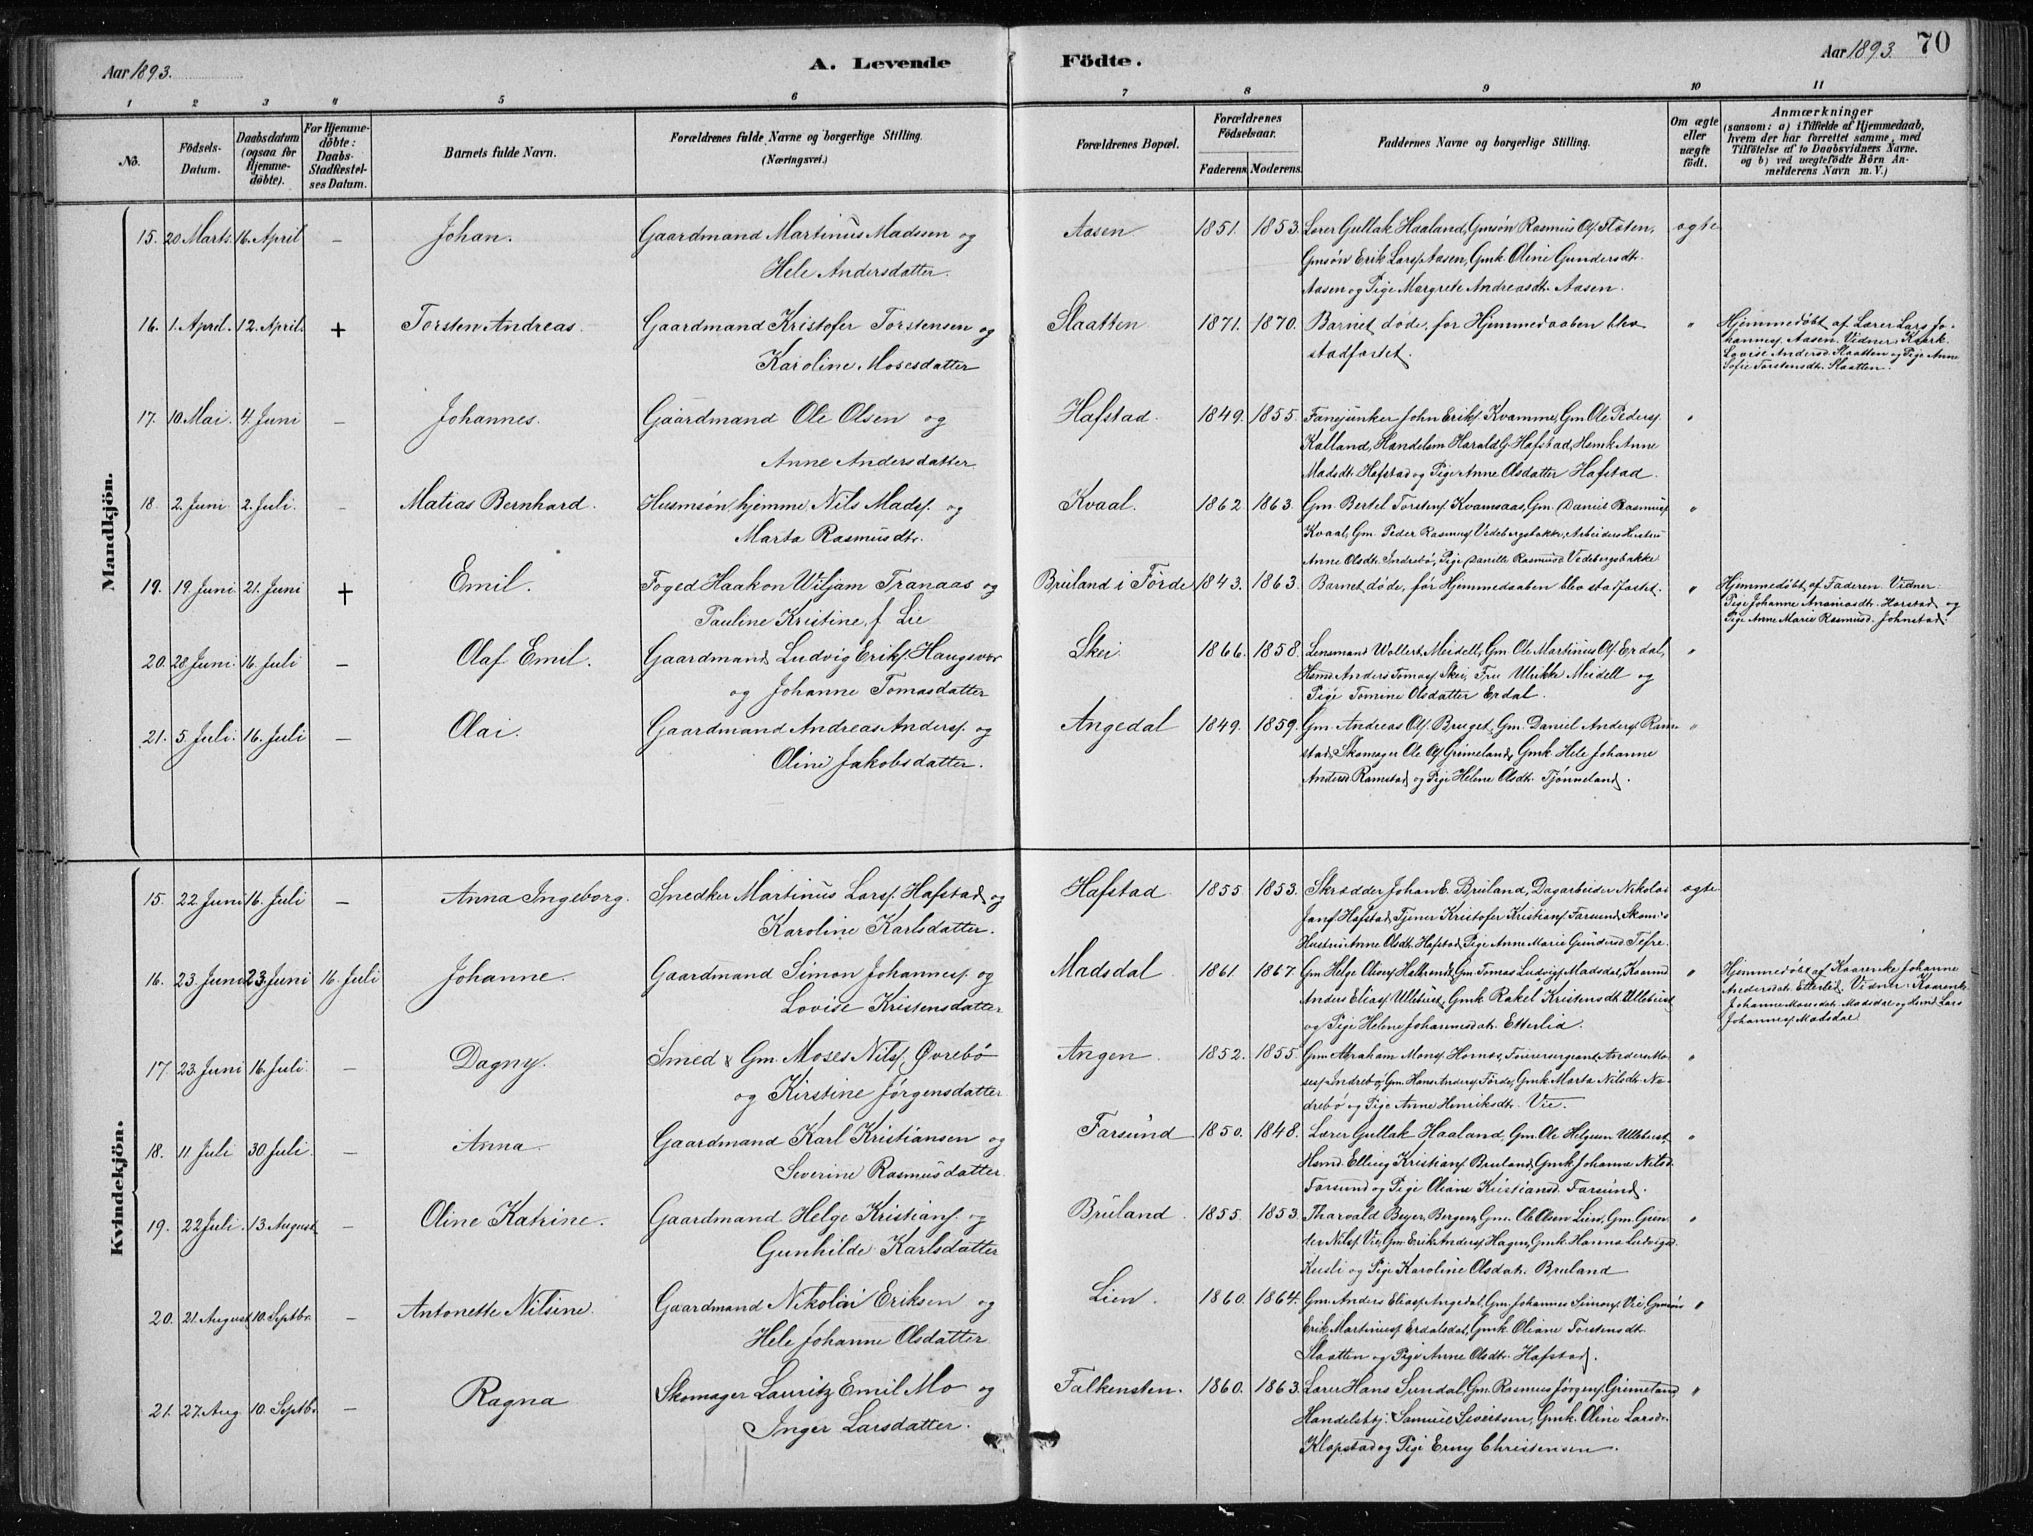 Aar 1893.
A. Levende Födte.
Aar 1893. 70
1 2 3 4 5 6 7 8 9 10 11
No.
Födsels-
Datum.
Daabsdatum
(ogsaa for
Hjemme-
döbte).
For Hjemme-
döbte:
Daabs-
Stadfæstel-
ses Datum.
Barnets fulde Navn.
Forældrenes fulde Navne og borgerlige Stilling.
(Næringsvei.)
Forældrenes Bopæl.
Forældrenes
Födselsaar.
Faderens. Moderens.
Faddernes Navne og borgerlige Stilling.
Om ægte
eller
uægte
født.
Anmærkninger
(saasom: a) i Tilfælde af Hjemmedaab,
hvem der har forrettet samme, med
Tilføielse af to Daabsvidners Navne.
og b) ved uægtefødte Börn An-
melderens Navn m. V.)
Mandkjön.
15. 20 Marts. 16. April – Johan. Gaardmand Martinus Madsen og Aasen 1851. 1853. Lærer Gullak Haaland, Gmsøn Rasmus Ols. Floten, ægte
Hele Andersdatter. Gmsøn Erik Lars. Aasen, Gmk. Oline Gundersdt.
Aasen og Pige Margrete Andreasdt. Aasen.
16. 1. April. 12. April. + Torsten Andreas. Gaardmand Kristofer Torstensen og Slaatten 1871. 1870. Barnet døde, før Hjemmedaaben blev " Hjemmedøbt af Lærer Lars Jo-
Karoline Mosesdatter stadfæstet. hannes. Aasen. Vidner: Kjærk.
Lovise Andersd. Slaatten og Pige Anne
Sofie Torstensdt. Slaatten.
17. 10. Mai. 4. Juni – Johannes. Gaardmand Ole Olsen og Hafstad. 1849. 1855. Fanejunker John Eriks. Kvamme, Gm. Ole Peders. "
Anne Andersdatter Kalland, Handelsm. Harald G. Hafstad, Hsmk. Anne
Madsdt. Hafstad og Pige Anne Olsdatter Hafstad.
18. 2. Juni 2. Juli. – Matias Bernhard. Husmsøn, hjemme, Nils Mads. og Kvaal. 1862. 1863. Gm. Bertel Torstens. Kvamsaas, Gm. Daniel Rasmus. "
Marta Rasmusdt. Kvaal, Gm. Peder Rasmus. Vedebergsbakke, Arbeiders Hustru
Anne Olsdt. Indrebø, Pige Danielle Rasmusd. Vedebergsbakke
19. 19. Juni 21. Juni + Emil. Foged Haakon Wiljam Tranaas og Bruland i Førde 1843. 1863. Barnet døde, før Hjemmedaaben blev stadfæstet. " Hjemmedøbt af Faderen. Vidner:
Pauline Kristine, f. Lie Pige Johanne Ananiasdt. Harstad og
Pige Anne Marie Rasmusd. Johnstad.
20. 28. Juni 16. Juli – Olaf Emil. Gaardmand Ludvig Eriks. Haugsvær Skei. 1866. 1858. Lensmand Wollert Meidell, Gm. Ole Martinus Ols. Erdal, "
og Johanne Tomasdatter Hsmd. Anders Tomas. Skei, Fru Ulrikke Meidell og
Pige Tomine Olsdatter Erdal.
21. 5. Juli. 16. Juli – Olai. Gaardmand Andreas Anders. og Angedal 1849. 1859. Gm. Andreas Ols. Bruget, Gm. Daniel Anders. Ram- "
Oline Jakobsdatter. stad, Skomager Ole Ols. Grimeland, Gmk. Hele Johanne
Andersd. Ramstad og Pige Helene Olsdt. Tjønneland.
Kvindekjön.
15. 22 Juni 16. Juli – Anna Ingeborg. Snedker Martinus Lars. Hafstad og Hafstad 1855. 1853. Skrædder Johan E. Bruland, Dagarbeider Nikolai ægte
Karoline Karlsdatter. Jans. Hafstad, Tjener Kristofer Kristians. Farsund, Skom:s
Hustru Anne Olsdt. Hafstad, Pige Anne Marie Gundersd. Tefre.
16. 23 Juni 23 Juni 16. Juli Johanne. Gaardmand Simon Johannes. og Madsdal 1861. 1867. Gm. Helge Olias. Halbrendt, Gm. Tomas Ludvigs. Madsdal, " Hjemmedøbt af Kaarenke Johanne
Lovise Kristensdatter Anders Elias. Ullebust, Gmk. Rakel Kristensdt. Ullebust Andersdt. Etterlid. Vidner: Kaarenk.
og Pige Helene Johannesdt. Etterlid. Johanne Mosesdt. Madsdal og Hsmd. Lars
Johannes. Madsdal
17. 23. Juni 16. Juli. – Dagny. Smed & Gm. Moses Nils. Øvrebø Angen. 1852. 1855. Gm. Abraham Mons. Hornes, Anders Mo- "
og Kirstine Jørgensdatter ses. Indrebø, Gm. Hans Anders. Førde, Gmk. Marta Nilsdt. Ne-
drebø og Pige Anne Henriksdt. Vie.
18. 11. Juli 30. Juli. – Anna. Gaardmand Karl Kristiansen og Farsund 1850. 1848. Lærer Gullak Haaland, Gm. Ole Helgesen Ullebust, "
Severine Rasmusdatter Hsmd. Elling Kristians. Bruland, Gmk. Johanne Nilsd.
Farsund og Pige Oliane Kristiansd. Farsund.
19. 22 Juli. 13. August – Oline Katrine. Gaardmand Helge Kristians. og Bruland. 1855. 1853. Tharvald Beyer, Bergen, Gm. Ole Olsen Lien, Gm. Gun- "
Gunhilde Karlsdatter der Nils. Vie, Gm. Erik Anders. Hagen, Gmk. Hanna Ludvigsd.
Kusli og Pige Karoline Olsdat. Bruland
20. 21. August 10. Septbr. – Antonette Nilsine. Gaardmand Nikolai Eriksen og Lien. 1860. 1864. Gm. Anders Elias. Angedal, Gm. Johannes Simons. Vie, Gmsøn "
Hele Johanne Olsdatter Erik Martinius. Erdalsdal, Gmk. Oliane Torstensdt.
Slaatten og Pige Anne Olsdt. Hafstad.
21. 27. Aug. 10. Septbr. – Ragna Skomager Lauritz Emil Mo og Falkensten. 1860. 1863. Lærer Hans Sundal, Gm. Rasmus Jørgens. Grimeland "
Inger Larsdatter. Handelsbj: Samuel Sivertsen, Gmk. Oline Larsd.
Klopstad og Pige Erny Christensen.